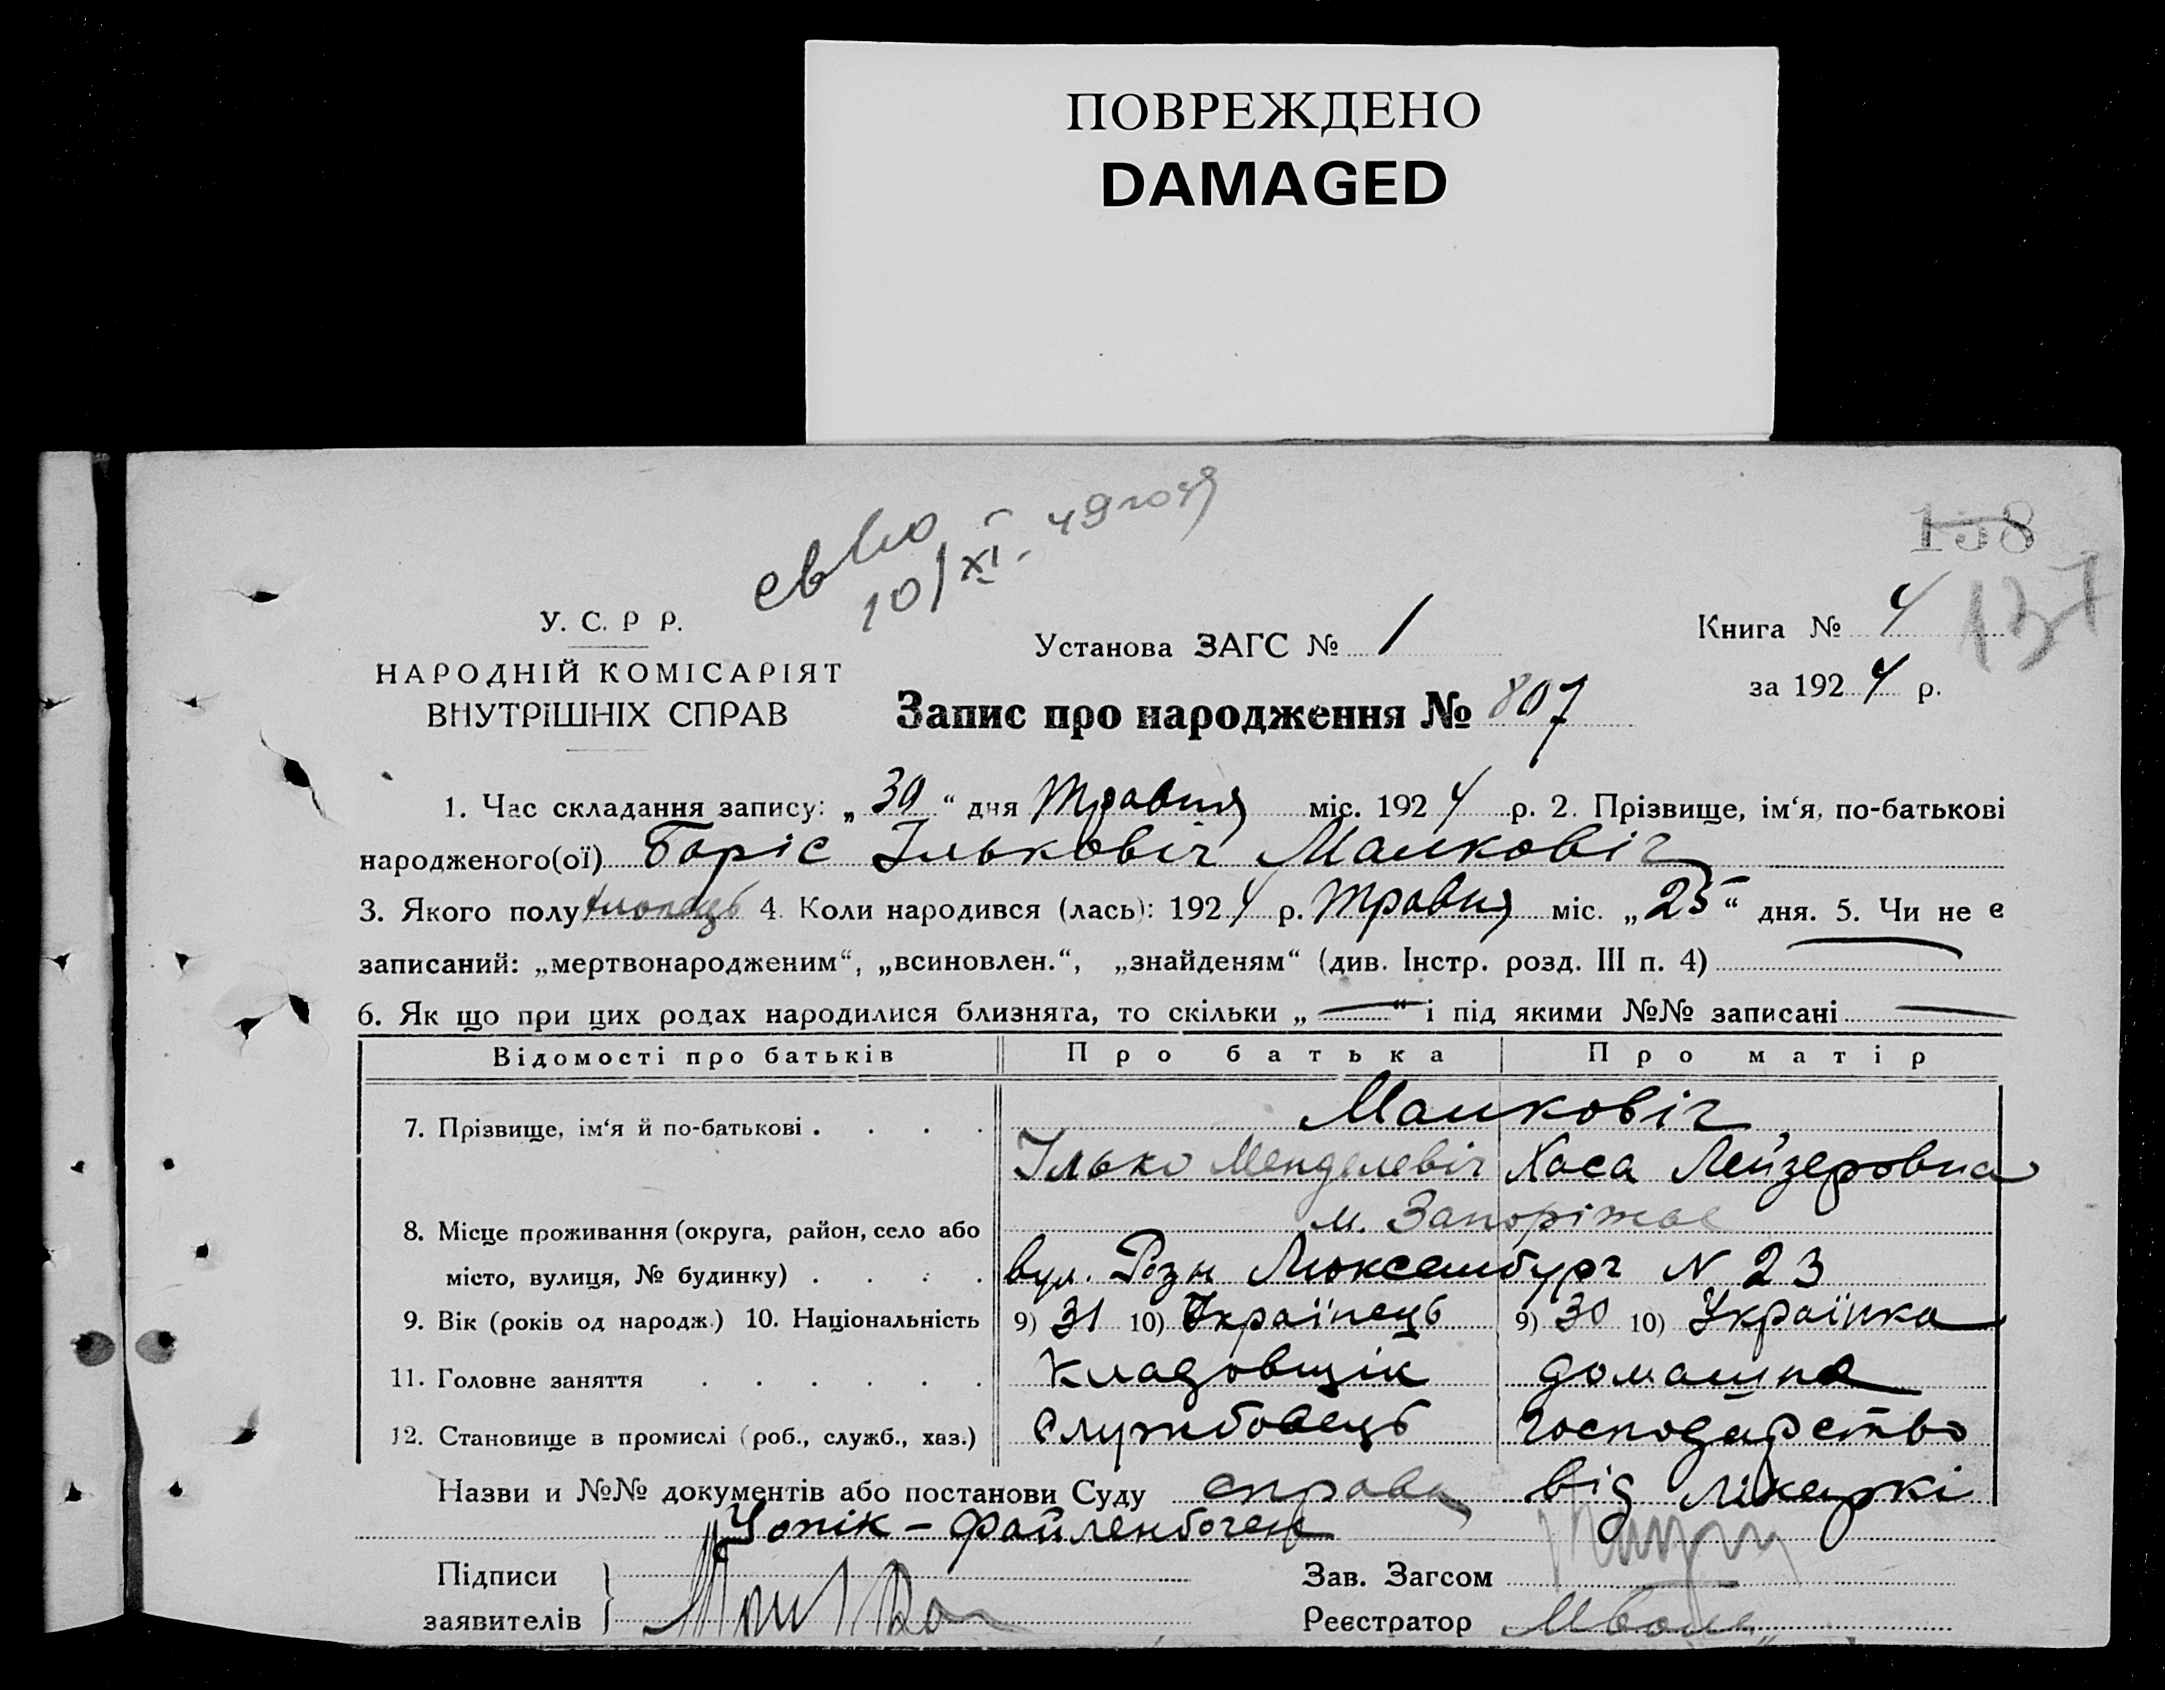 ПОВРЕЖДЕНО
DAMAGED
10/XI - 49 года
158
137
У. С. Р Р.
НАРОДНІЙ КОМІСАРІЯТ
ВНУТРІШНІХ СПРАВ
Установа ЗАГС № 1
Книга № 4
за 1924 р.
Запис про народження № 807
1. Час складання запису: „30“ дня Травня міс. 1924 р. 2. Прізвище, ім‘я, по-батькові
народженого(ої) Боріс Ільковіч Маиковіч
3. Якого полу хлопець 4. Коли народився (лась): 1924 р. Травня міс. „25“ дня. 5. Чи не є
записаний: „мертвонародженим“, „всиновлен.“, „знайденям“ (див. Інстр. розд. III п. 4)
6. Як що при цих родах народилися близнята, то скільки „—“ і під якими №№ записані —
Відомості про батьків Про батька Про матір
7. Прізвище, ім‘я й по-батькові . . . . Маиковіч
Ілько Менделевіч Хаса Лейзеровна
м. Запоріжье
8. Місце проживання (округа, район, село або
місто, вулиця, № будинку) . . . . вул. Рози Люксембург N 23
9. Вік (років од народж.) 10. Національність 9) 31 10) Українець 9) 30 10) Українка
11. Головне заняття . . . . . . Кладовщік домашне
12. Становище в промислі (роб., служб., хаз.) Службовець господарство
Назви и №№ документів або постанови Суду справка від лікаркі
Чопік - Файленбоген
Підписи
заявителів
Зав. Загсом
Реєстратор